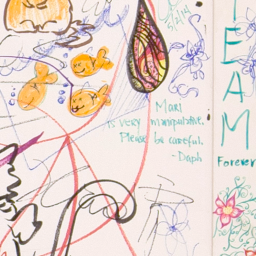 5/2/14
Mari
is very manipulative.
Please be careful.
- Daph
TEAM
Forever